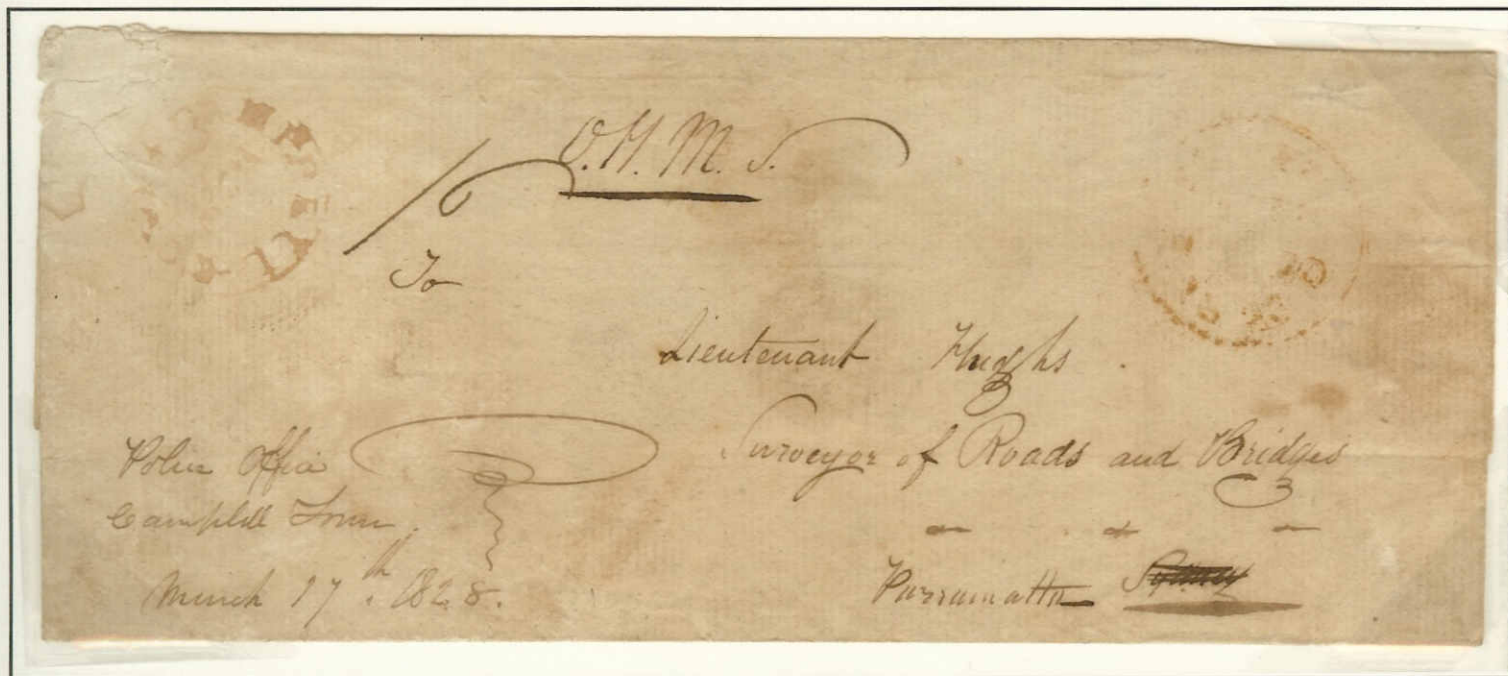 O.H.M.S.
To
Lieutenant Hughs
Surveyor of Roads and Bridges
Parramatta Sydney
Police Office
Campbell Town.
March 17th. 1828.